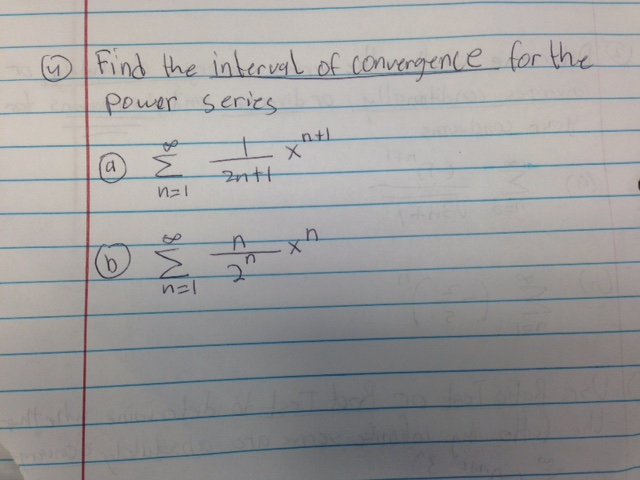 ④ Find the interval of convergence for the
power series
ⓐ ∞ Σ n=1 1/(2n+1) x^(n+1)
ⓑ ∞ Σ n=1 n/2^n x^n